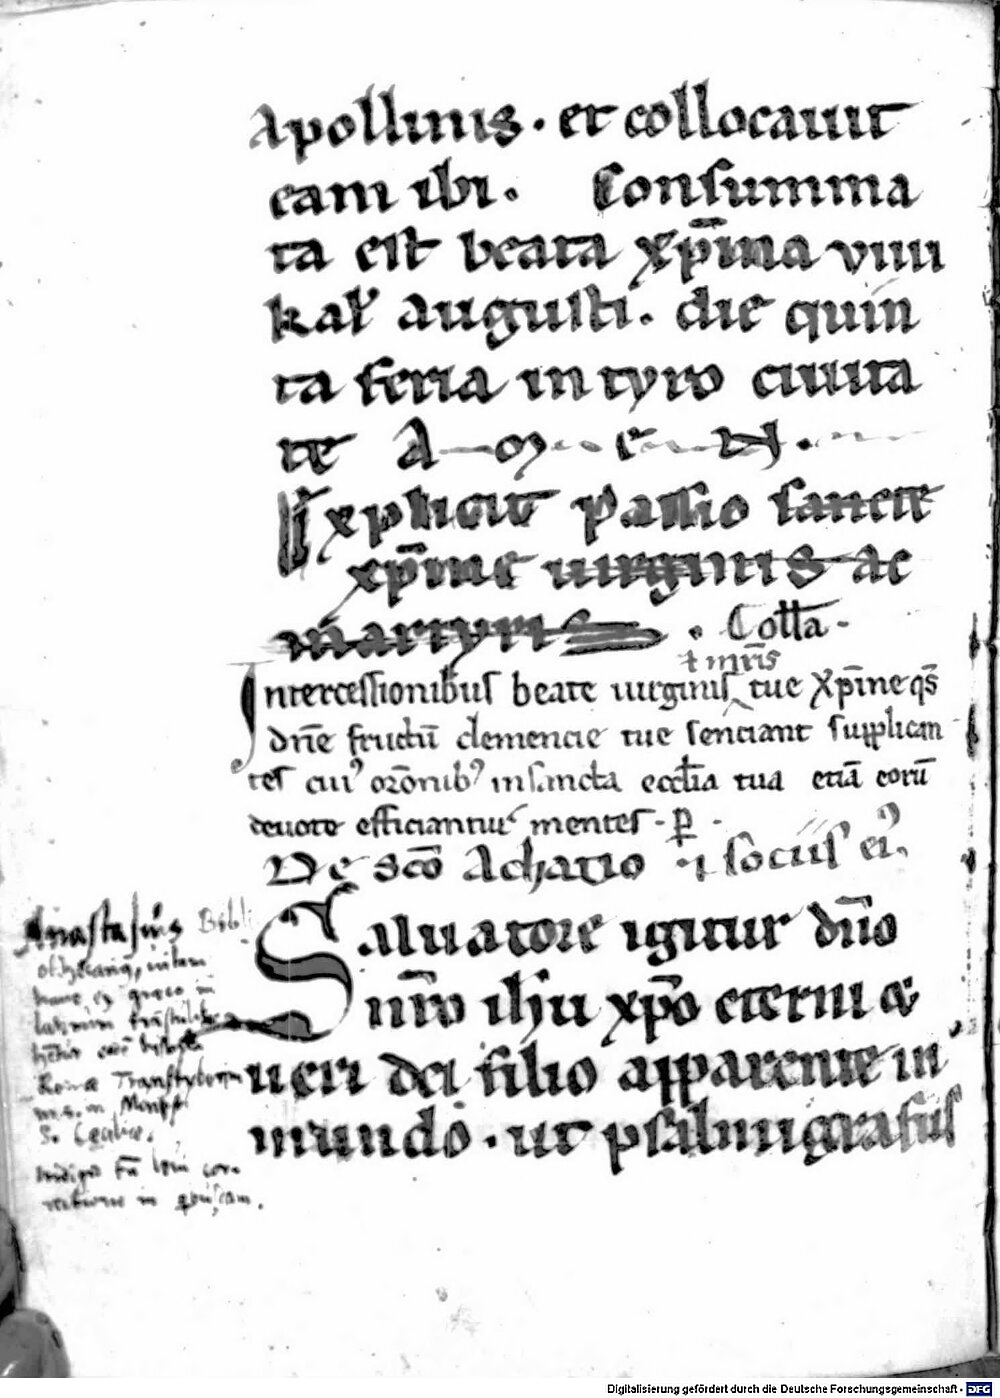 Apollinis · et collocauit
eam ibi · Consumma
ta est beata xp̄ina viiii
kal' augusti · die quin
ta feria in tyro ciuita
te A m e N ·
Explicit passio sancte
xp̄ine uirginis ac
martyris · Coll̄a ·
⁊ mr̄is
Intercessionibus beate uirginis tue Xp̄ine qs̄
dn̄e fructū clemencie tue senciant supplican
tes cui᾽ or̄onib᾽ in sancta eccl̄ia tua etiā eorū
deuote efficiantur mentes · p̄ ·
De sc̄o Achatio ⁊ sociis ei᾽.
Saluatore igitur dn̄o
nr̄o ihu xp̄o eterni æ
ueri dei filio apparente in
mundo · ut psalmigrafus
Anastasius Bibli
othecarius, vitam
hanc ex graeco in
latinum
Romæ Transtyberim
m.s. in
S. Cecilie.
Digitalisierung gefördert durch die Deutsche Forschungsgemeinschaft - DFG